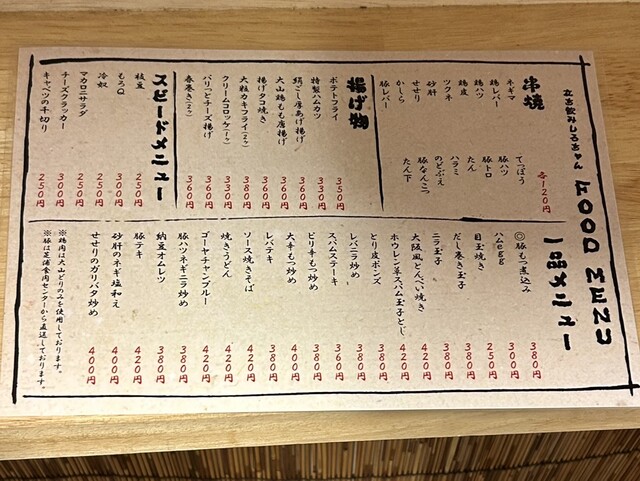 立ち飲みしろちゃん FOOD MENU
串焼 各120円
ネギマ
鶏レバー
鶏ハツ
鶏皮
ツクネ
砂肝
せせり
かしら
豚レバー
てっぽう
豚ハツ
豚トロ
たん
ハラミ
のどぶえ
豚なんこつ
たん下
揚げ物
ポテトフライ 350円
特製ハムカツ 330円
絹ごし厚あげ揚げ 360円
大山鶏もも唐揚げ 360円
揚げタコ焼き 360円
大粒カキフライ(2ヶ) 380円
クリームコロッケ(2ヶ) 330円
パリッとチーズ揚げ 360円
春巻き(2ヶ) 360円
スピードメニュー
枝豆 250円
もろQ 300円
冷奴 250円
マカロニサラダ 250円
チーズクラッカー 300円
キャベツの千切り 250円
一品メニュー
◎豚もつ煮込み 380円
ハムegg 300円
目玉焼き 250円
だし巻き玉子 380円
ニラ玉子 380円
大阪風とんぺい焼き 420円
ホウレン草とハム玉子とじ 420円
とり皮ポンズ 380円
レバニラ炒め 380円
スパムステーキ 360円
ピリ辛もつ炒め 380円
大辛もつ炒め 400円
レバテキ 380円
ソース焼きそば 420円
焼きうどん 420円
ゴーヤチャンプルー 420円
豚ハツネギニラ炒め 380円
納豆オムレツ 380円
豚テキ 420円
砂肝のネギ塩和え 400円
せせりのガリバタ炒め 400円
※鶏肉は大山どりのみを使用しております。
※豚は芝浦食肉センターから直送しております。